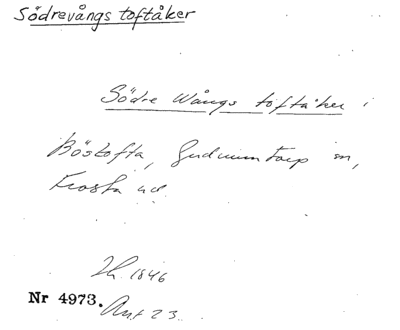 Södrevångs toftåker
Södre Wångs toftåker i
Böstofta, Gudmuntorp sn,
Frosta hd
1846
Nr 4973.
23